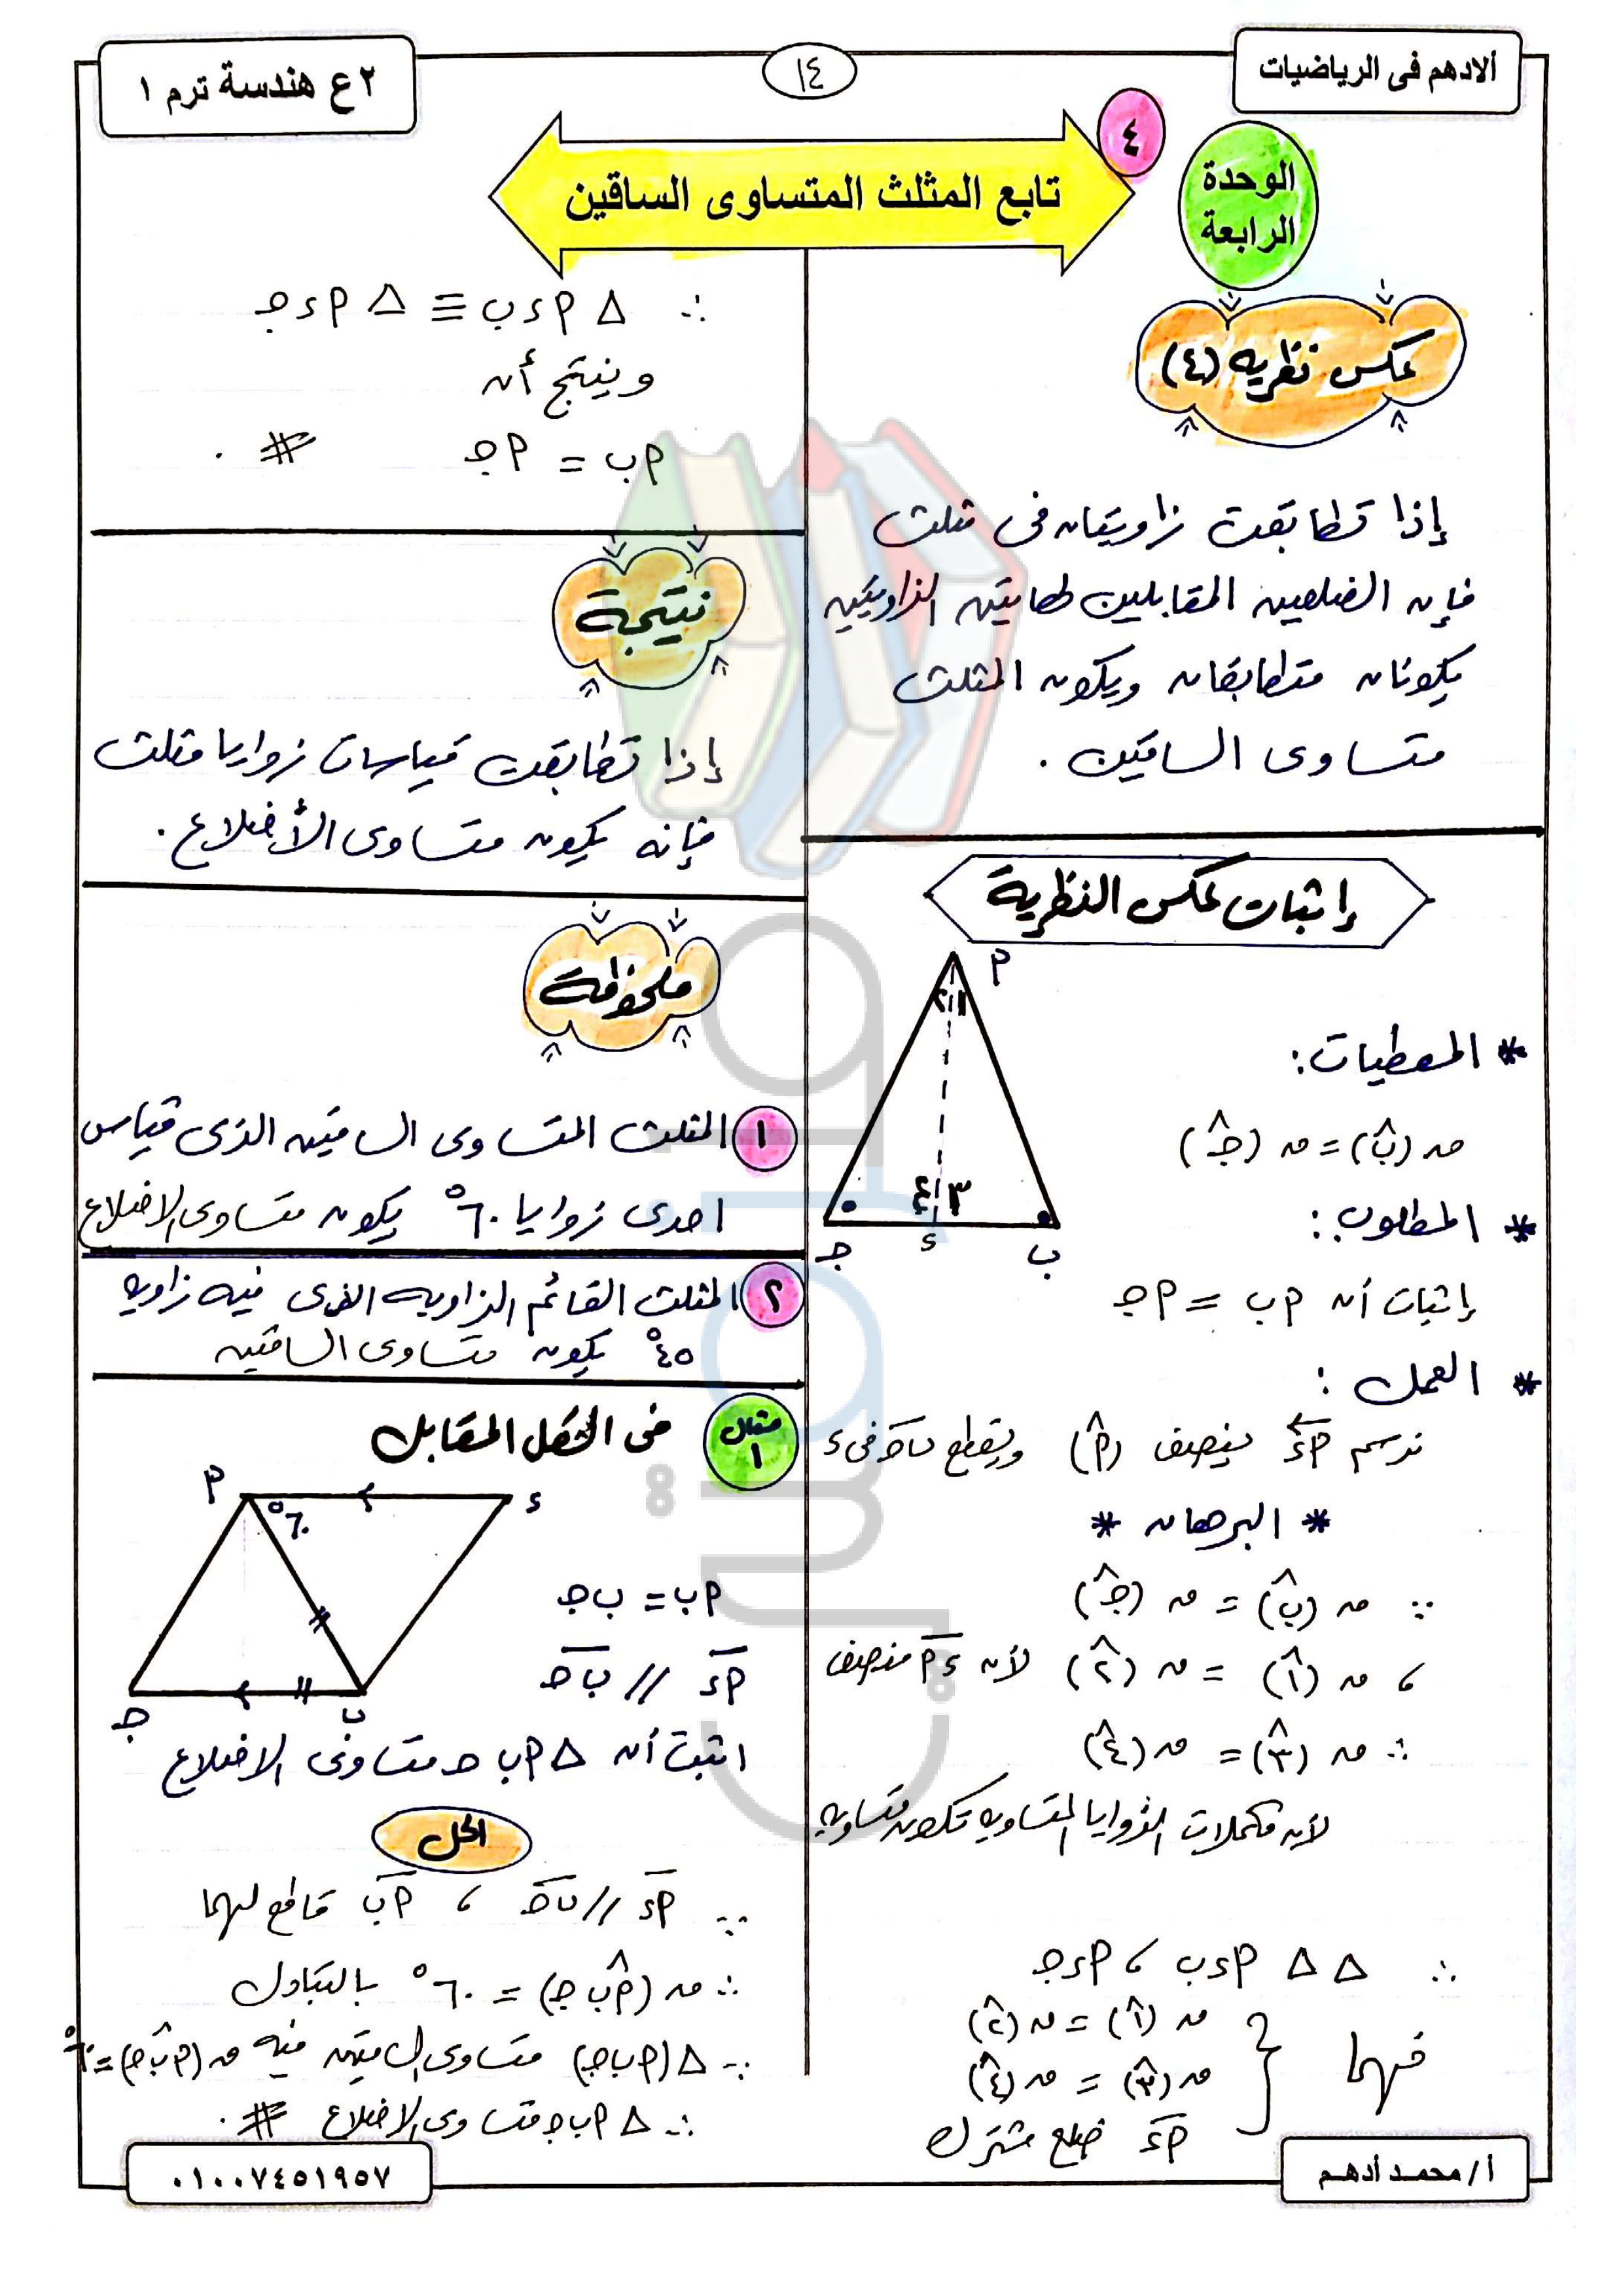 ألادهم فى الرياضيات
١٤
٢ ع هندسة ترم ١
الوحدة
الرابعة
٤
تابع المثلث المتساوى الساقين
عكس نظريه (٤)
إذا تطابقت زاويتان فى مثلث
فإن الضلعين المقابلين لهاتين الزاويتين
يكونان متطابقان ويكون المثلث
متساوى الساقين .
إثبات عكس النظرية
* المعطيات :
ق (بˆ) = ق (جˆ)
* المطلوب :
إثبات أن م ب = م ج
* العمل :
نرسم م ء ينصف (مˆ) ويقطع ب ج فى ء
م
١ ٢
٣ ٤
ب ء ج
* البرهان *
∵ ق (بˆ) = ق (جˆ)
، ق (١ˆ) = ق (٢ˆ) لأن م ء منصف
∴ ق (٣ˆ) = ق (٤ˆ)
لأن مكملات الزوايا المتساويه تكون متساويه
∴ Δ Δ م ء ب ، م ء ج
فيهما
ق (١ˆ) = ق (٢ˆ)
ق (٣ˆ) = ق (٤ˆ)
م ء ضلع مشترك
∴ Δ م ء ب ≡ Δ م ء ج
وينتج أن
م ب = م ج #.
نتيجة
إذا تطابقت قياسات زوايا مثلث
فإنه يكون متساوى الأضلاع .
ملحوظة
١ المثلث المتساوى الساقين الذى قياس
احدى زوايا ٦٠° يكون متساوى الاضلاع
٢ المثلث القائم الزاويه الذى فيه زاويه
٤٥° يكون متساوى الساقين
مثال ١ فى الشكل المقابل
م ء
٦٠°
ج ب
م ب = ب ج
م ء // ب ج
اثبت أن Δ م ب ج متساوى الاضلاع
الحل
∵ م ء // ب ج ، م ب قاطع لهما
∴ ق (م بˆ ج) = ٦٠° بالتبادل
∵ Δ (م ب ج) متساوى الساقين فيه ق (م بˆ ج) = ٦٠°
∴ Δ م ب ج متساوى الاضلاع #.
أ / محمـد أدهـم
٠١٠٠٧٤٥١٩٥٧